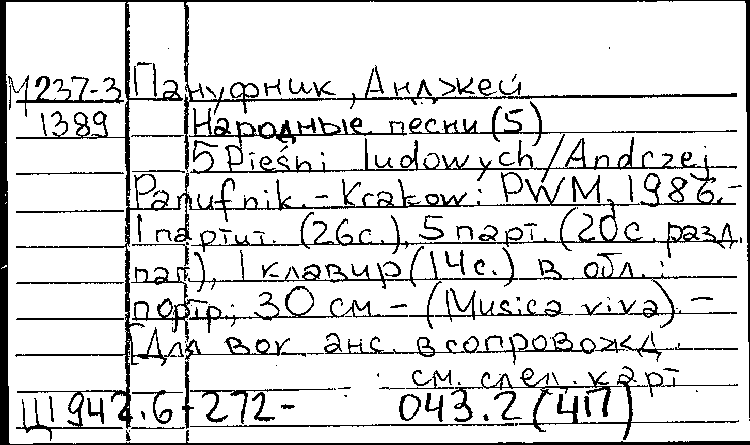 М237-3 Пануфник, Анджей
1389 Народные песни (5)
5 Pieśni ludowych / Andrzej
Panufnik. - Krakow: PWM, 1986. -
1 партит. (26с.), 5 парт. (20с. разд.
паг.), 1 клавир (14с.) в обл.:
портр.; 30 см - (Musica viva). -
[Для вок. анс. в сопровожд.
см. след. карт
Ц1942.6-272- 043.2(4П)